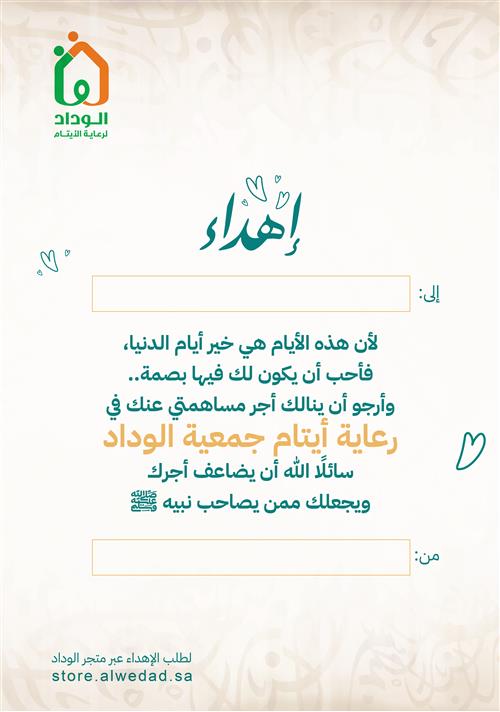 الوداد
لرعاية الأيتام
إهداء
إلى:
لأن هذه الأيام هي خير أيام الدنيا،
فأحب أن يكون لك فيها بصمة..
وأرجو أن ينالك أجر مساهمتي عنك في
رعاية أيتام جمعية الوداد
سائلًا الله أن يضاعف أجرك
ويجعلك ممن يصاحب نبيه ﷺ
من:
لطلب الإهداء عبر متجر الوداد
store.alwedad.sa